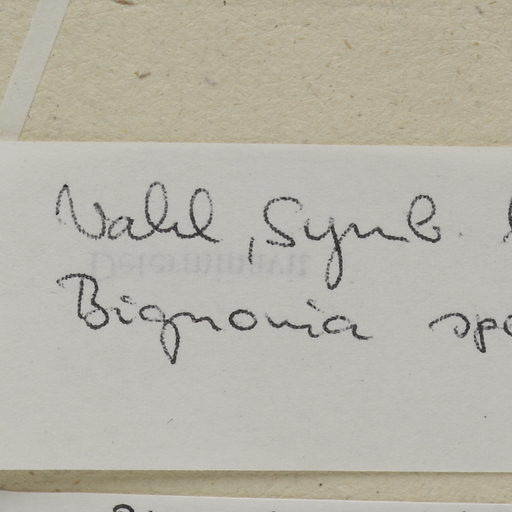 Vahl, Symb.
Bignonia